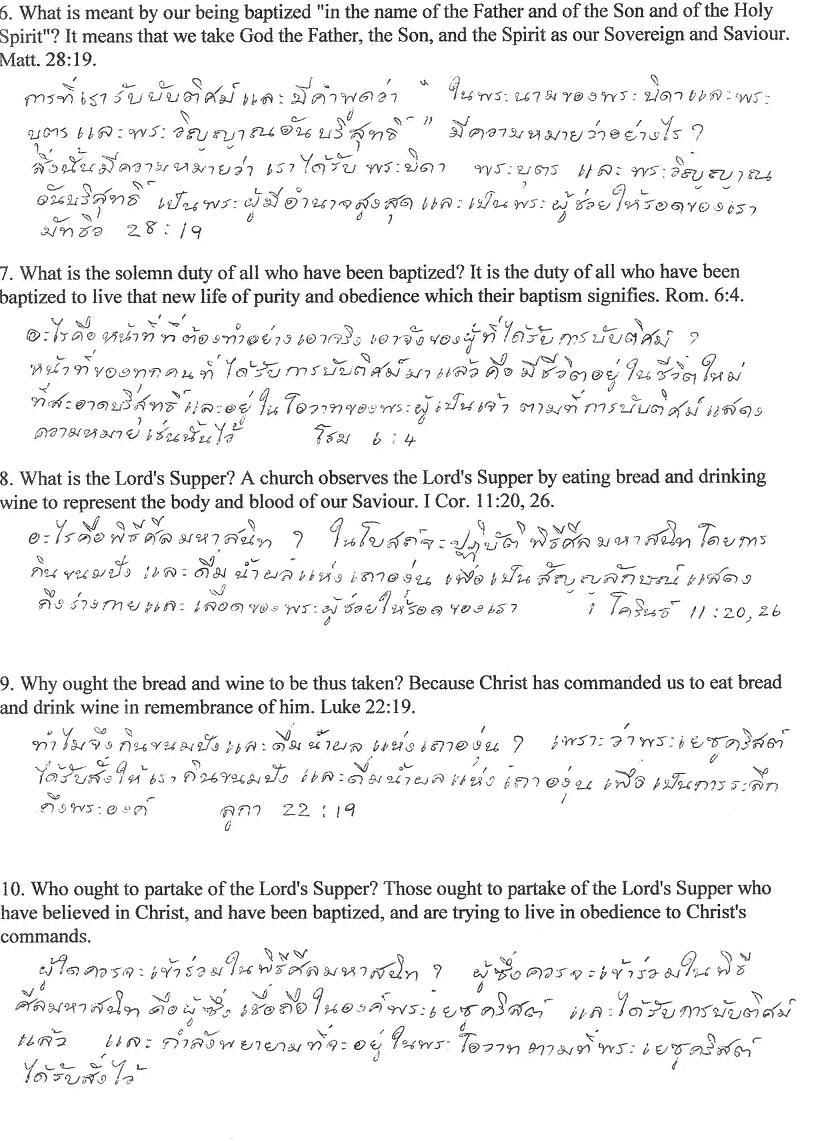 6. What is meant by our being baptized "in the name of the Father and of the Son and of the Holy
Spirit"? It means that we take God the Father, the Son, and the Spirit as our Sovereign and Saviour.
Matt. 28:19.
การที่เรารับบับติศม์และมีคำพูดว่า " ในพระนามของพระบิดาและพระ
บุตรและพระวิญญาณอันบริสุทธิ์ " มีความหมายว่าอย่างไร ?
สิ่งนั้นมีความหมายว่า เราได้รับ พระบิดา พระบุตร และ พระวิญญาณ
อันบริสุทธิ์ เป็นพระผู้มีอำนาจสูงสุด และเป็นพระผู้ช่วยให้รอดของเรา
มัทธิว 28:19
7. What is the solemn duty of all who have been baptized? It is the duty of all who have been
baptized to live that new life of purity and obedience which their baptism signifies. Rom. 6:4.
อะไรคือหน้าที่ที่ต้องทำอย่างเอาจริงเอาจังของผู้ที่ได้รับการบับติศม์ ?
หน้าที่ของทุกคนที่ได้รับการบับติศม์มาแล้ว คือ มีชีวิตอยู่ในชีวิตใหม่
ที่สะอาดบริสุทธิ์และอยู่ในโอวาทของพระผู้เป็นเจ้า ตามที่การบับติศม์แสดง
ความหมายเช่นนั้นไว้ โรม 6:4
8. What is the Lord's Supper? A church observes the Lord's Supper by eating bread and drinking
wine to represent the body and blood of our Saviour. I Cor. 11:20, 26.
อะไรคือพิธีศีลมหาสนิท ? ในโบสถ์จะปฏิบัติพิธีศีลมหาสนิทโดยการ
กินขนมปัง และดื่มน้ำผลแห่งเถาองุ่น เพื่อเป็นสัญญลักษณ์แสดง
ถึงร่างกายและเลือดของพระผู้ช่วยให้รอดของเรา 1 โครินธ์ 11:20,26
9. Why ought the bread and wine to be thus taken? Because Christ has commanded us to eat bread
and drink wine in remembrance of him. Luke 22:19.
ทำไมจึงกินขนมปังและดื่มน้ำผลแห่งเถาองุ่น ? เพราะว่าพระเยซูคริสต์
ได้รับสั่งให้เรากินขนมปัง และดื่มน้ำผลแห่งเถาองุ่น เพื่อเป็นการระลึก
ถึงพระองค์ ลูกา 22:19
10. Who ought to partake of the Lord's Supper? Those ought to partake of the Lord's Supper who
have believed in Christ, and have been baptized, and are trying to live in obedience to Christ's
commands.
ผู้ใดควรจะเข้าร่วมในพิธีศีลมหาสนิท ? ผู้ซึ่งควรจะเข้าร่วมในพิธี
ศีลมหาสนิทคือผู้ซึ่งเชื่อถือในองค์พระเยซูคริสต์ และได้รับการบับติศม์
แล้ว และกำลังพยายามที่จะอยู่ในพระโอวาทตามที่พระเยซูคริสต์
ได้รับสั่งไว้